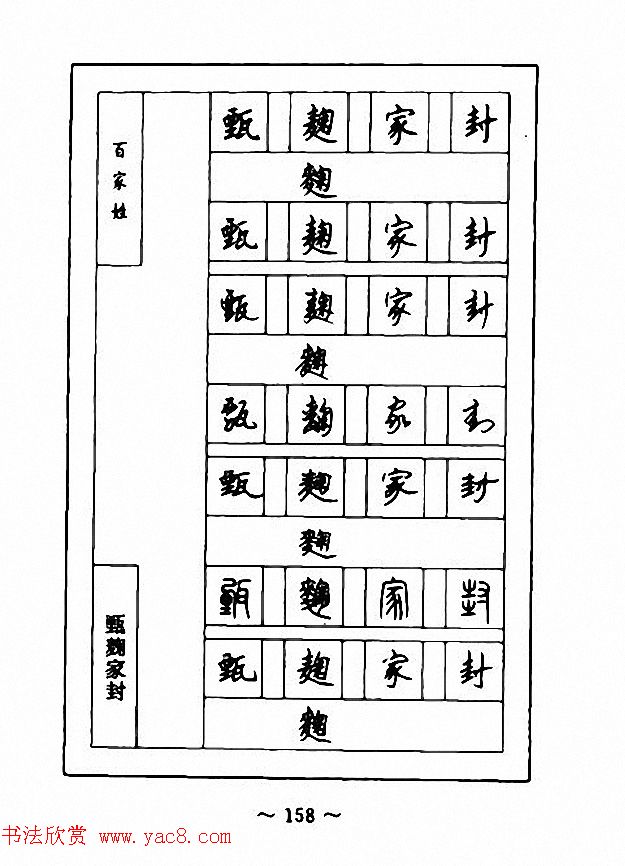 百家姓
甄麴家封
甄 麴 家 封
麴
甄 麴 家 封
甄 麴 家 封
麴
甄 麴 家 封
甄 麴 家 封
麴
甄 麴 家 封
甄 麴 家 封
麴
~ 158 ~
书法欣赏 www.yac8.com